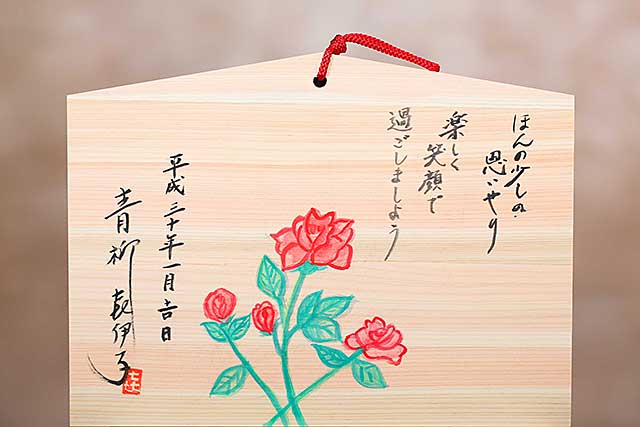 ほんの少しの
思いやり
楽しく
笑顔で
過ごしましょう
平成三十年一月吉日
青柳㐂伊子